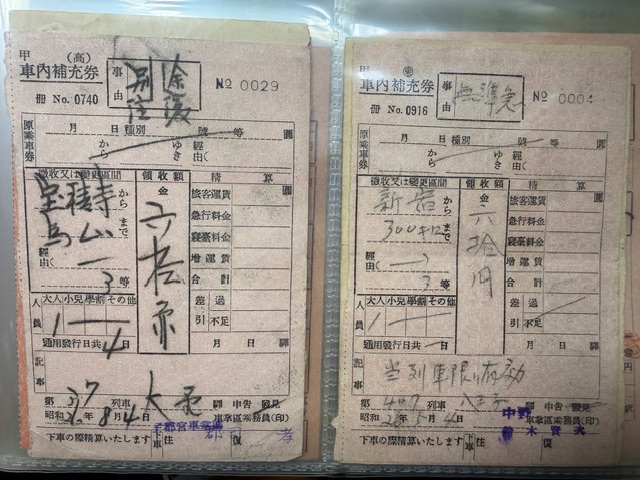 甲 (高)
車內補充券
事由
№ 0029
冊 No. 0740
原乗車券
月 日 種別 號 等 圓
から ゆき 經由(
徵收又は變更區間
から
烏山 まで
經由(
3等
領收額
金
六拾
精算
旅客運賃
急行料金
寢臺料金
增運賃
合計
差引 過
不足
人員
大人 小兒 學割 その他
1
通用發行日共 4 日
月 日 譯
記事
第 37 列車 譯 申告 發見
昭和 年 8月 4日 車掌區乘務員(印)
宇都宮車掌區
下車の際精算いたします 下車 往復
甲
車內補充券
事由
無準急
№ 0004
冊 No. 0916
原乗車券
月 日 種別 號 等 圓
から ゆき 經由(
徵收又は變更區間
新宿 から
300キロ まで
經由(
3等
領收額
金
六拾円
精算
旅客運賃
急行料金
寢臺料金
增運賃
合計
差引 過
不足
人員
大人 小兒 學割 その他
1
通用發行日共 一 日
月 日 譯
記事
当列車限り有効
第 407 列車 八王子 譯 申告 發見
昭和 年 月 4日 車掌區乘務員(印)
中野
下車の際精算いたします 下車 往復